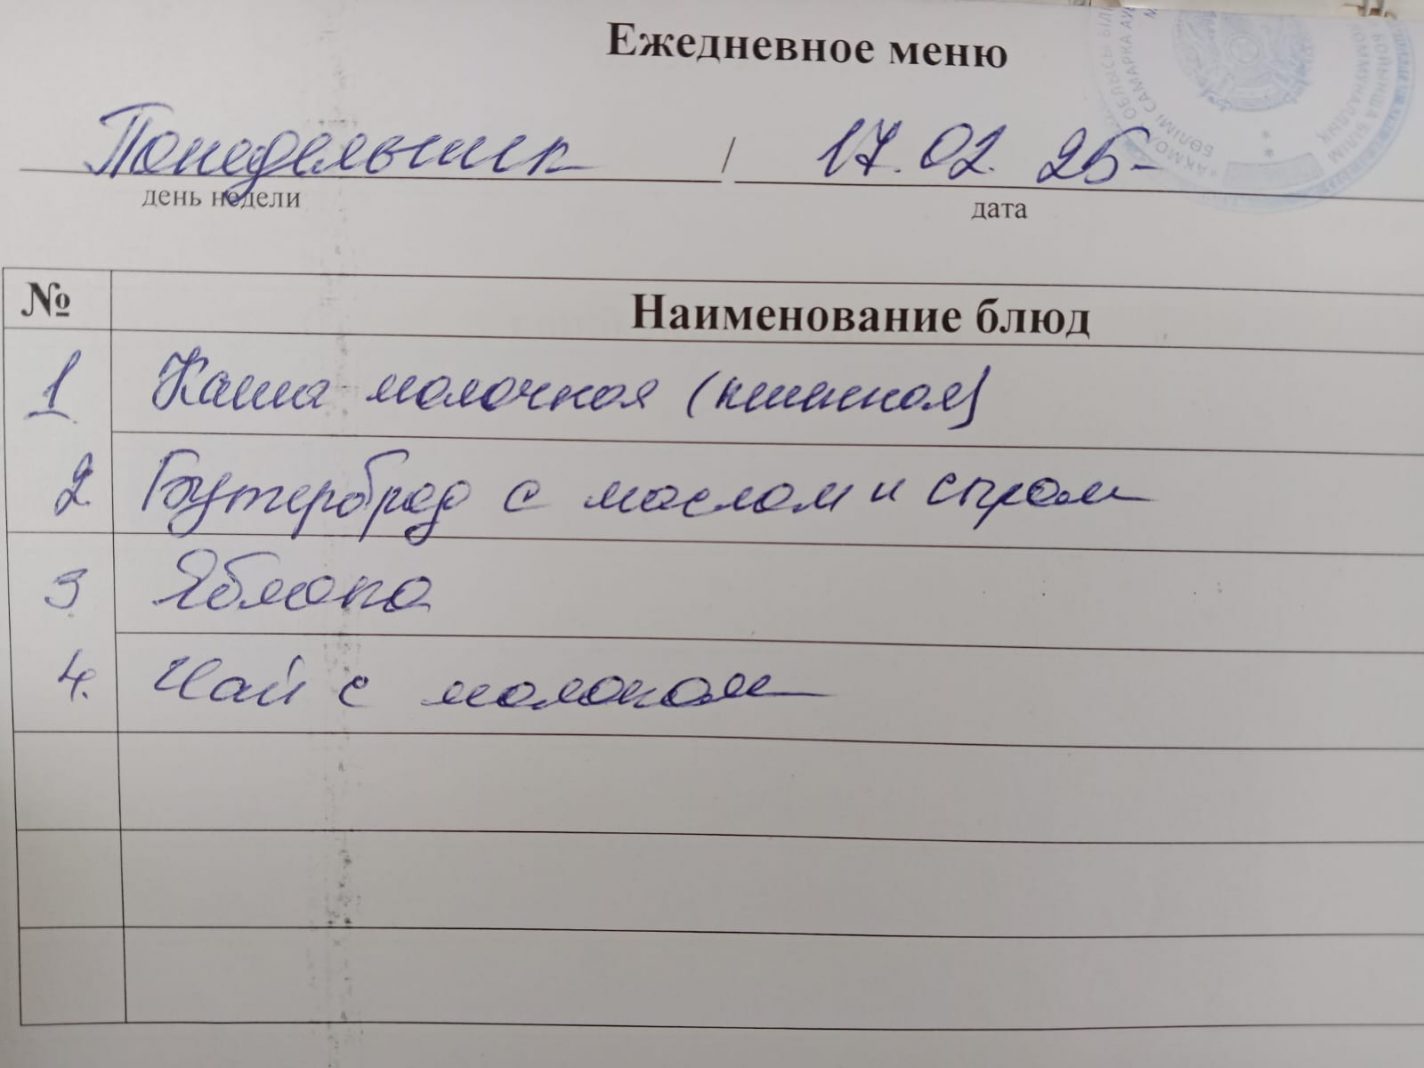 Ежедневное меню
Понедельник / 17.02.25-
день недели дата
№ Наименование блюд
1 Каша молочная (пшенная)
2 Бутерброд с маслом и сыром
3 Яблоко
4. Чай с молоком